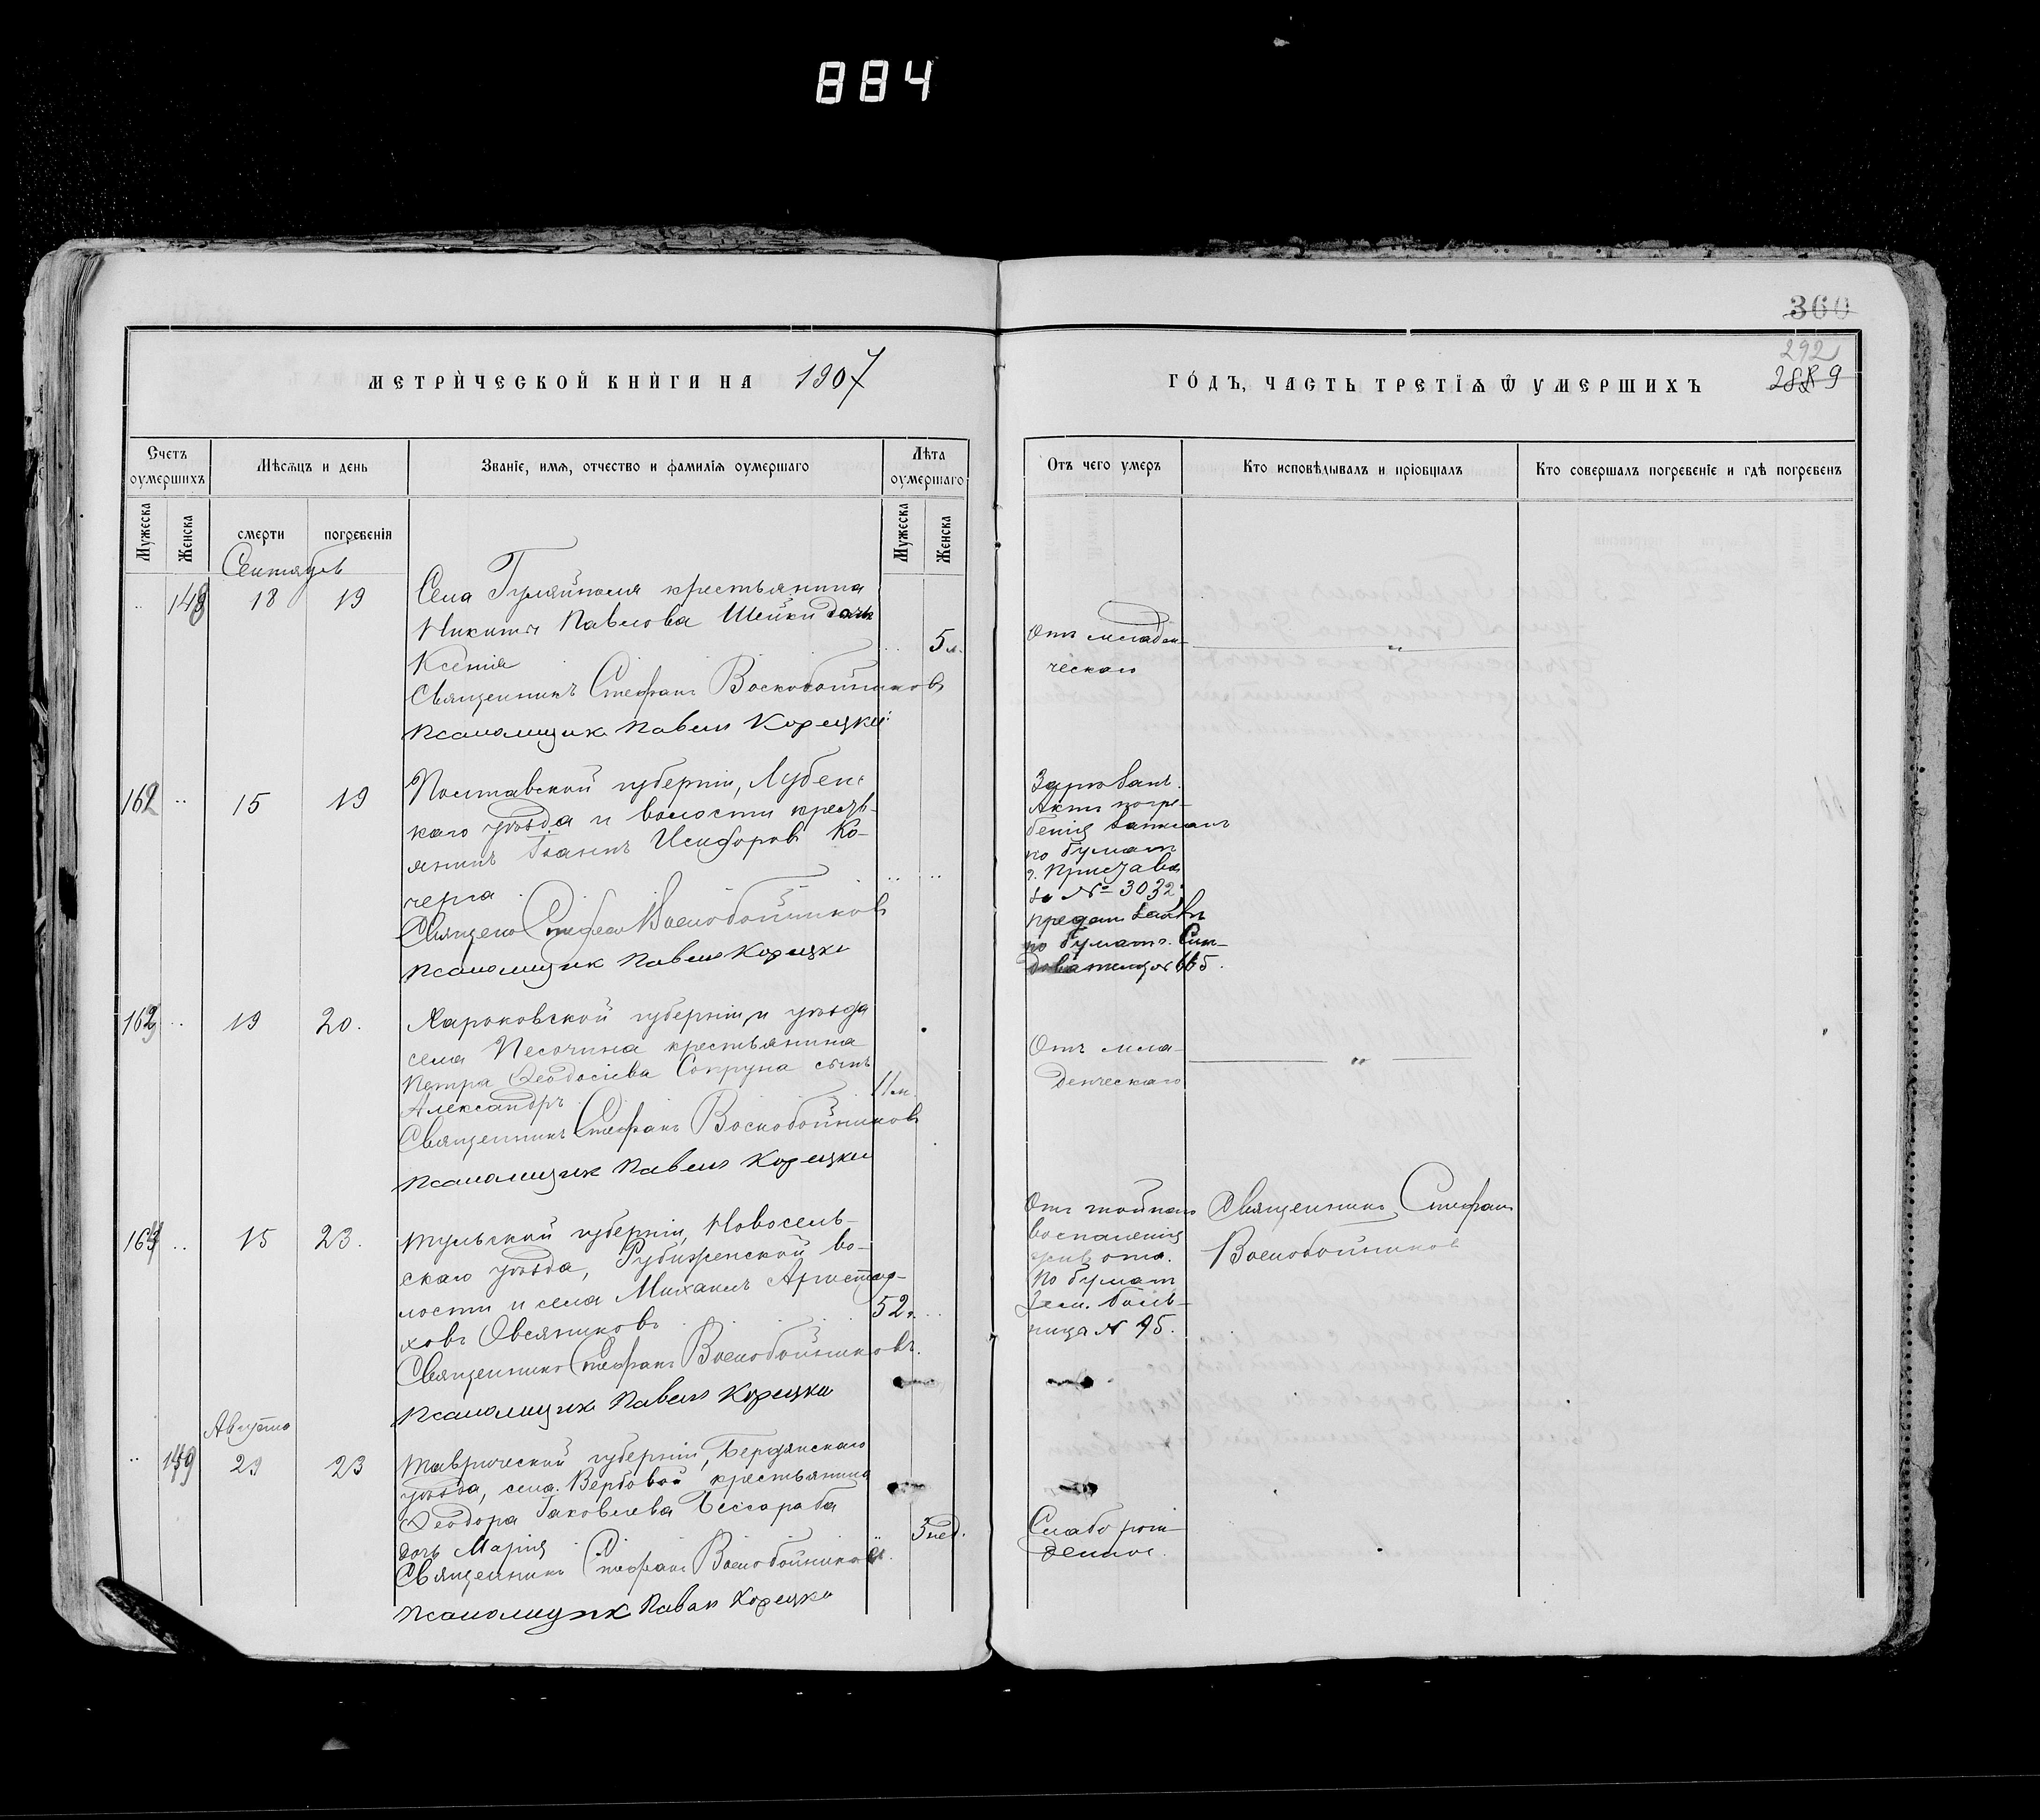 884
360
292
МЕТРИЧЕСКОЙ КНИГИ НА 1907
ГОДЪ, ЧАСТЬ ТРЕТІѦ Ѿ УМЕРШИХЪ
Счетъ оумершихъ
Мѣсѧцъ и день
Званіе, имѧ, отчество и фамиліѧ оумершаго
Лѣта оумершаго
Отъ чего умеръ
Кто исповѣдывалъ и пріобщалъ
Кто совершалъ погребеніе и гдѣ погребенъ
Мужеска
Женска
смерти
погребенія
Мужеска
Женска
Сентябрь
148 18 19
Села Гуляйполя крестьянина
Никиты Павлова Шейки дочь
Ксенія
5 л.
Священникъ Стефанъ Воскобойниковъ
Псаломщикъ Павелъ Корецкій
Отъ младен-
ческаго
162 15 19
Полтавской губерніи, Лубенс
каго уѣзда и волости кресть-
янинъ Іоаннъ Исидоровъ Ко-
черга
Священ Стефан Воскобойниковъ
Псаломщик Павелъ Корецкі
Зарѣзанъ.
Актъ погре-
бенія записанъ
по бумагѣ
г. Пристава
за № 3032
по бумагѣ г. Слѣ-
дователя № 665.
163 19 20.
Харьковской губерніи и уѣзда
села Песочина крестьянина
Петра Ѳеодосіева Сопруна сынъ
Александръ
11 м.
Священникъ Стефанъ Воскобойниковъ
Псаломщик Павелъ Корецкій
Отъ мла-
денческаго
164 15 23.
Тульской губерніи, Новосель-
скаго уѣзда, Рубиженской во-
лости и села Михаилъ Аристар-
ховъ Овсяниковъ
52 г.
Священникъ Стефанъ Воскобойниковъ.
Псаломщикъ Павелъ Корецкій
Отъ гнойнаго
воспаленія
живота.
По бумагѣ
Зем. боль-
ницы № 95.
Священникъ Стефанъ
Воскобойниковъ
Августа
149 29 23
Таврической губерніи, Бердянскаго
уѣзда, села Вербовой крестьянина
Ѳеодора Іаковлева Бессараба
дочь Марія
3 нед.
Священникъ Стефанъ Воскобойниковъ
Псаломщик Павел Корецкі
Слабо рож-
денное.